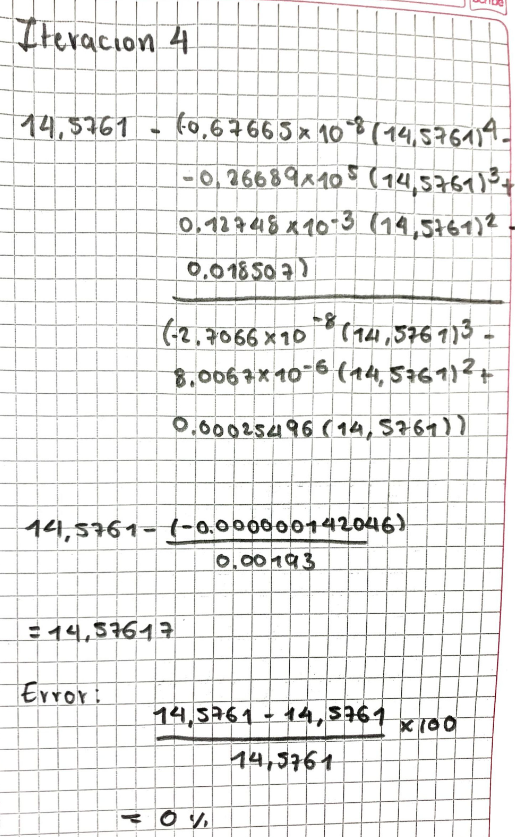 Iteracion 4
14,5761 - (-0,67665 x 10^-8 (14,5761)^4 -
-0,26689 x 10^5 (14,5761)^3 +
0.12748 x 10^-3 (14,5761)^2 -
0.018507)
(-2.7066 x 10^-8 (14,5761)^3 -
8.0067 x 10^-6 (14,5761)^2 +
0.00025496 (14,5761))
14,5761 - (-0.000000142046)
0.00193
= 14,57617
Error:
14,5761 - 14,5761 x 100
14,5761
= 0 %